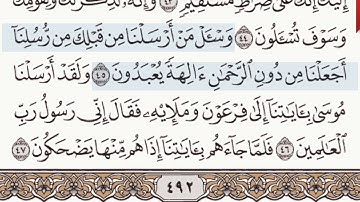 إِلَيْكَ إِنَّكَ عَلَىٰ صِرَٰطٍ مُّسْتَقِيمٍ ٤٣ وَإِنَّهُۥ لَذِكْرٌ لَّكَ وَلِقَوْمِكَ
وَسَوْفَ تُسْـَٔلُونَ ٤٤ وَسْـَٔلْ مَنْ أَرْسَلْنَا مِن قَبْلِكَ مِن رُّسُلِنَآ
أَجَعَلْنَا مِن دُونِ ٱلرَّحْمَٰنِ ءَالِهَةً يُعْبَدُونَ ٤٥ وَلَقَدْ أَرْسَلْنَا
مُوسَىٰ بِـَٔايَٰتِنَآ إِلَىٰ فِرْعَوْنَ وَمَلَإِي۟هِۦ فَقَالَ إِنِّى رَسُولُ رَبِّ
ٱلْعَٰلَمِينَ ٤٦ فَلَمَّا جَآءَهُم بِـَٔايَٰتِنَآ إِذَا هُم مِّنْهَا يَضْحَكُونَ ٤٧
٤٩٢